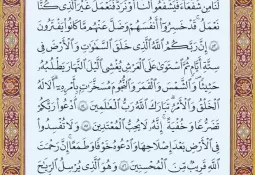 لَنَا مِن شُفَعَآءَ فَيَشْفَعُوا۟ لَنَآ أَوْ نُرَدُّ فَنَعْمَلَ غَيْرَ ٱلَّذِى كُنَّا
نَعْمَلُ ۚ قَدْ خَسِرُوٓا۟ أَنفُسَهُمْ وَضَلَّ عَنْهُم مَّا كَانُوا۟ يَفْتَرُونَ
۝ إِنَّ رَبَّكُمُ ٱللَّهُ ٱلَّذِى خَلَقَ ٱلسَّمَـٰوَٰتِ وَٱلْأَرْضَ فِى
سِتَّةِ أَيَّامٍ ثُمَّ ٱسْتَوَىٰ عَلَى ٱلْعَرْشِ يُغْشِى ٱلَّيْلَ ٱلنَّهَارَ يَطْلُبُهُۥ
حَثِيثًا وَٱلشَّمْسَ وَٱلْقَمَرَ وَٱلنُّجُومَ مُسَخَّرَٰتٍۭ بِأَمْرِهِۦٓ ۗ أَلَا لَهُ
ٱلْخَلْقُ وَٱلْأَمْرُ ۗ تَبَارَكَ ٱللَّهُ رَبُّ ٱلْعَـٰلَمِينَ ۝ ٱدْعُوا۟ رَبَّكُمْ
تَضَرُّعًا وَخُفْيَةً ۚ إِنَّهُۥ لَا يُحِبُّ ٱلْمُعْتَدِينَ ۝ وَلَا تُفْسِدُوا۟
فِى ٱلْأَرْضِ بَعْدَ إِصْلَـٰحِهَا وَٱدْعُوهُ خَوْفًا وَطَمَعًا ۚ إِنَّ رَحْمَتَ
ٱللَّهِ قَرِيبٌ مِّنَ ٱلْمُحْسِنِينَ ۝ وَهُوَ ٱلَّذِى يُرْسِلُ ٱلرِّيَـٰحَ